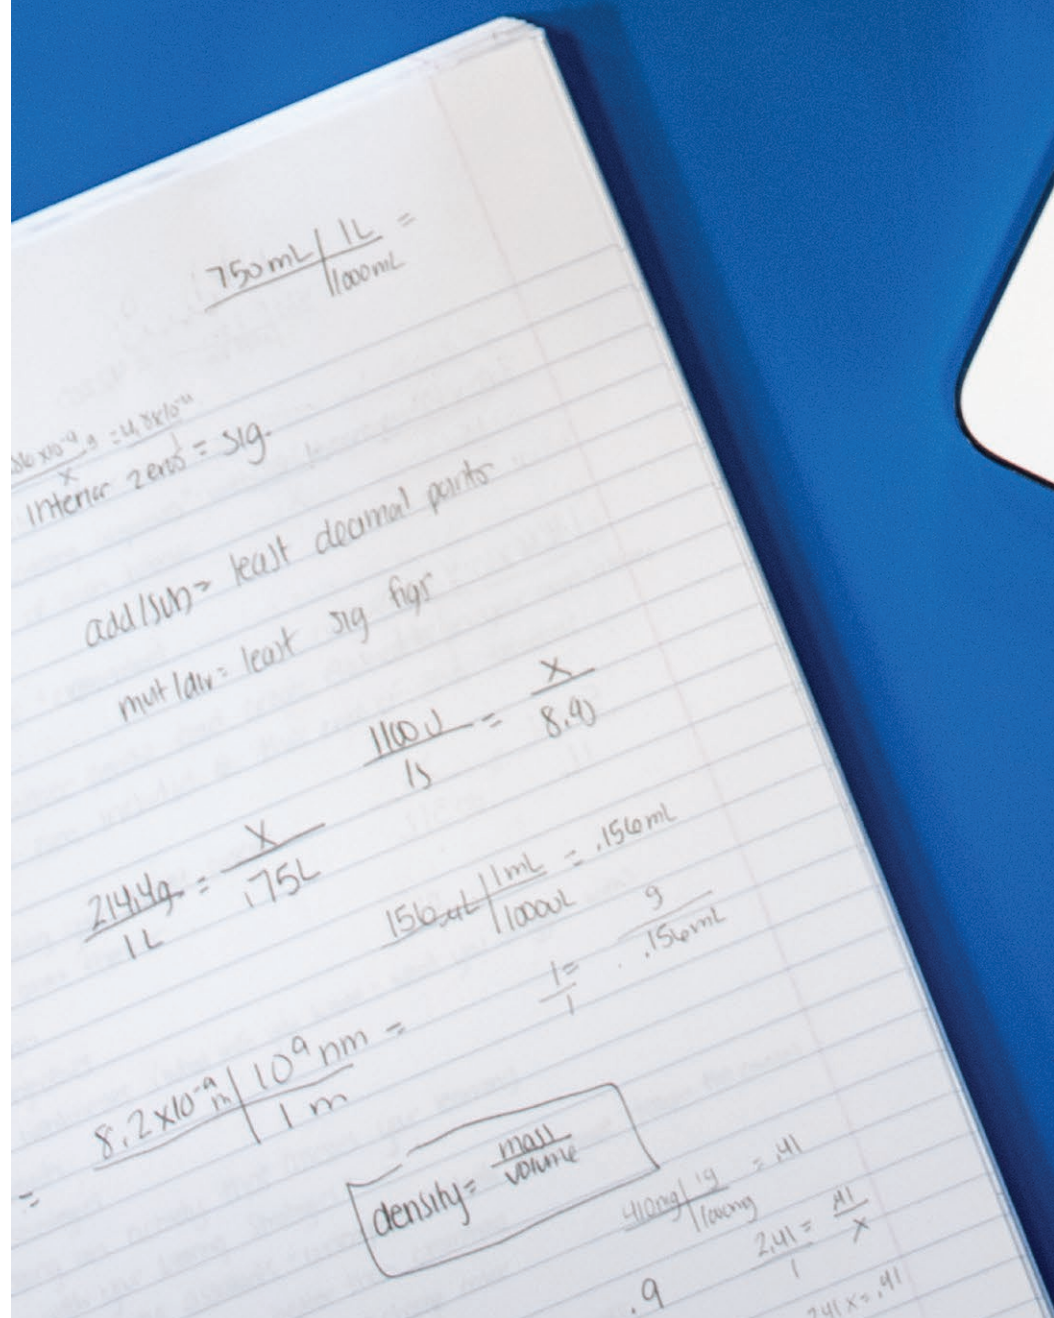 750 mL | 1L =
1000 mL
x
interior zeros = sig.
add/sub = least decimal points
mult/div = least sig figs
1100 J = x
1s 8.90
214.4g = x
1L .75L
156 uL | 1 mL = .156 mL
1000uL
1 = g
1 .156mL
8.2 x10⁻⁹ m | 10⁹ nm =
1 m
=
density = mass
volume
410mg | 1g = .41
1000mg
2.41 = .41
1 x
.9
2.41 x = .41